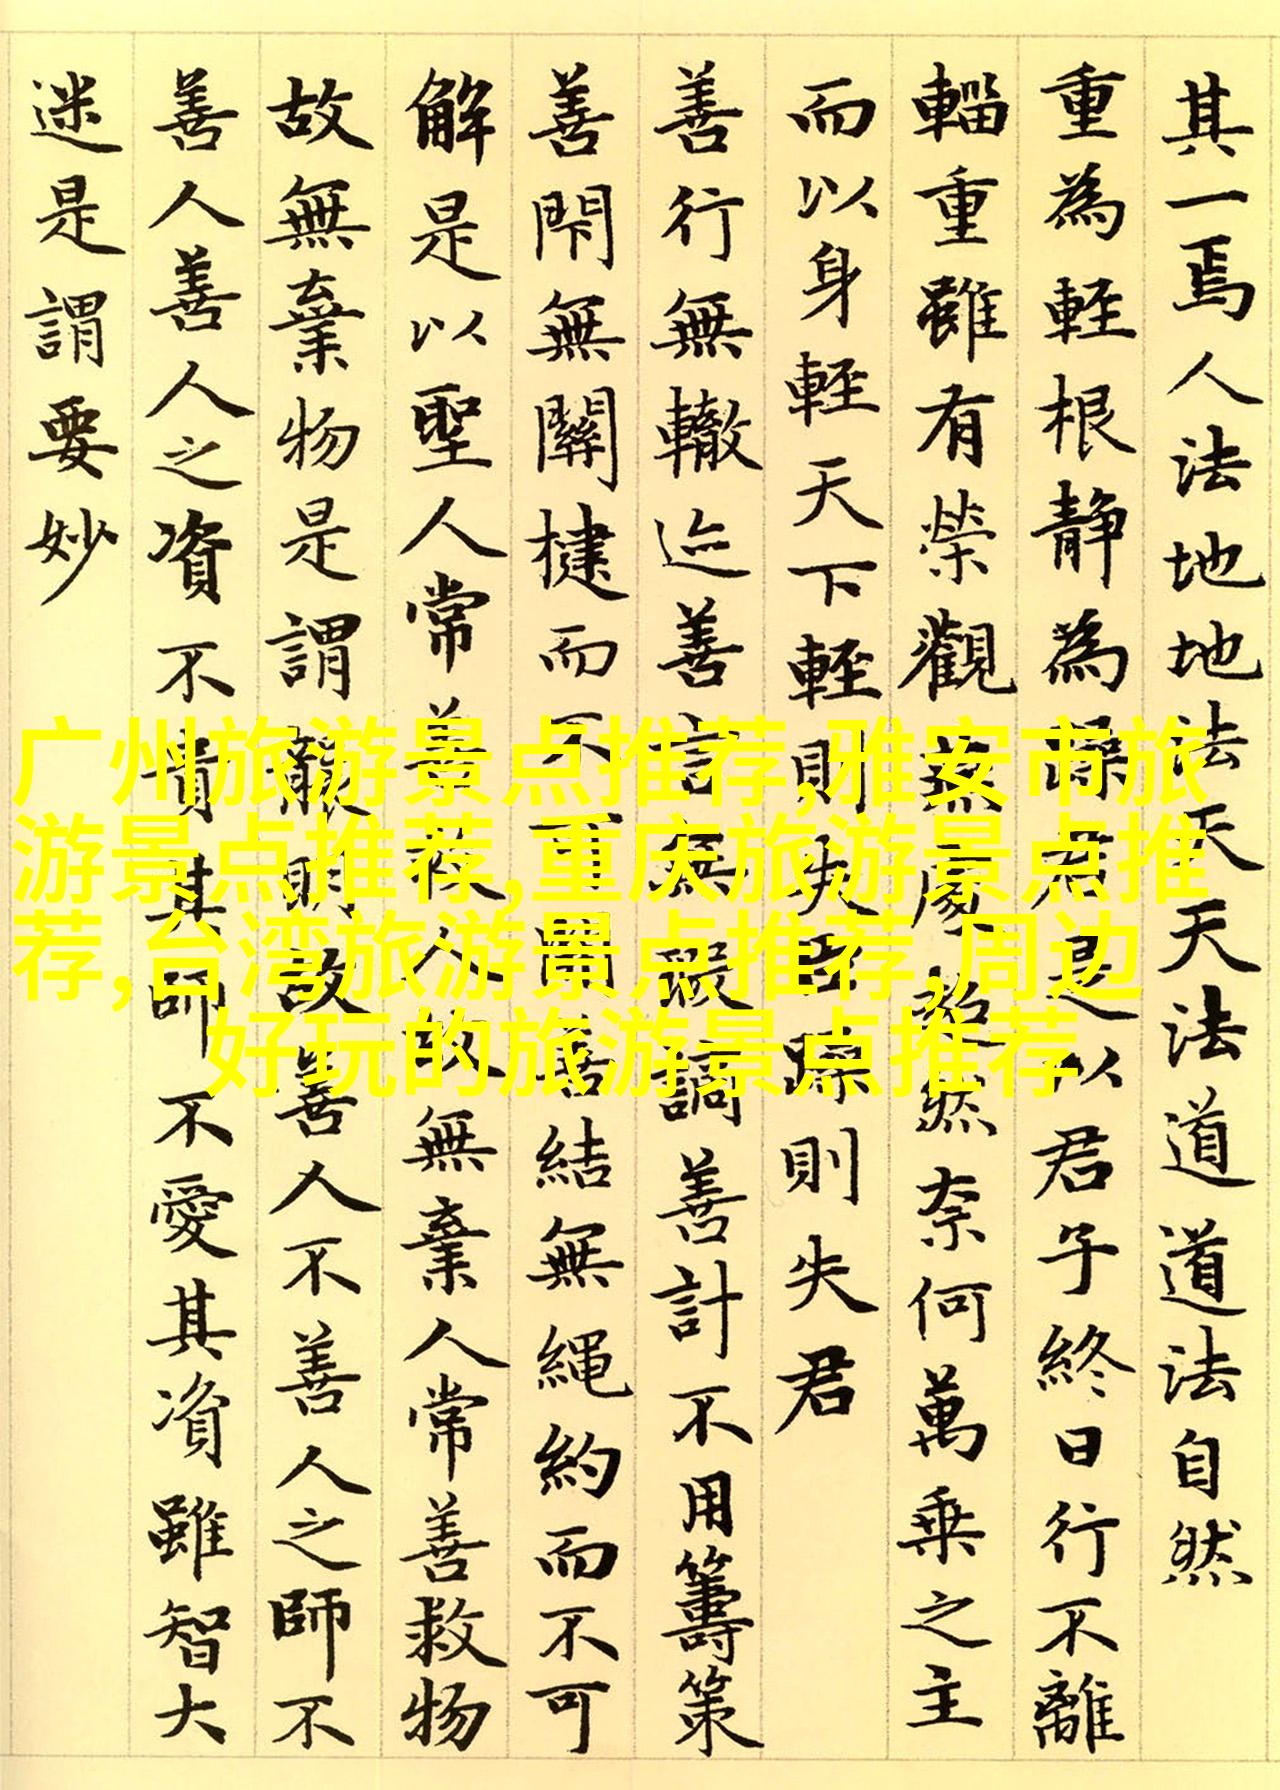 其一焉人法地地法天天法道道法自然
重為輕根靜為躁君是以君子終日行不離
輜重雖有榮觀燕處超然奈何萬乘之主
而以身輕天下輕則失臣躁則失君
善行無轍迹善言無瑕謫善計不用籌策
善閇無關楗而不可開善結無繩約而不可
解是以聖人常善救人故無棄人常善救物
故無棄物是謂襲明故善人不善人之師不
善人善人之資不貴其師不愛其資雖智大
迷是謂要妙
广州旅游景点推荐,雅安市旅
游景点推荐,重庆旅游景点推
荐,台湾旅游景点推荐,周边
好玩的旅游景点推荐